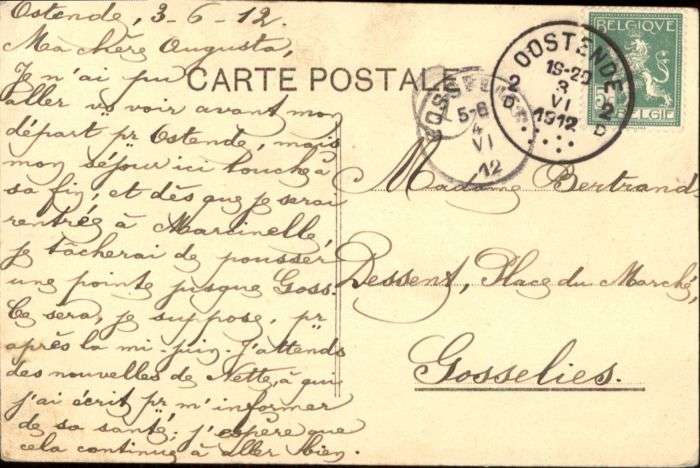 Ostende, 3-6-12.
Ma chère Augusta,
Je n'ai pu
aller vs voir avant mon
départ pr Ostende, mais
mon séjour ici touche à
sa fin, et dès que je serai
rentrée à Marcinelle,
je tâcherai de pousser
une pointe jusque Goss.
Ce sera, je suppose, pr
après la mi-juin. J'attends
des nouvelles de Nette, à qui
j'ai écrit pr m'informer
de sa santé; j'espère que
cela continue à aller bien.
CARTE POSTALE
GOSSELIES
5-6
4
VI
12
OOSTENDE
2 2
D D
3
VI
1912
BELGIQUE
BELGIË
Madame Bertrand
Dessent, Place du Marché
Gosselies.